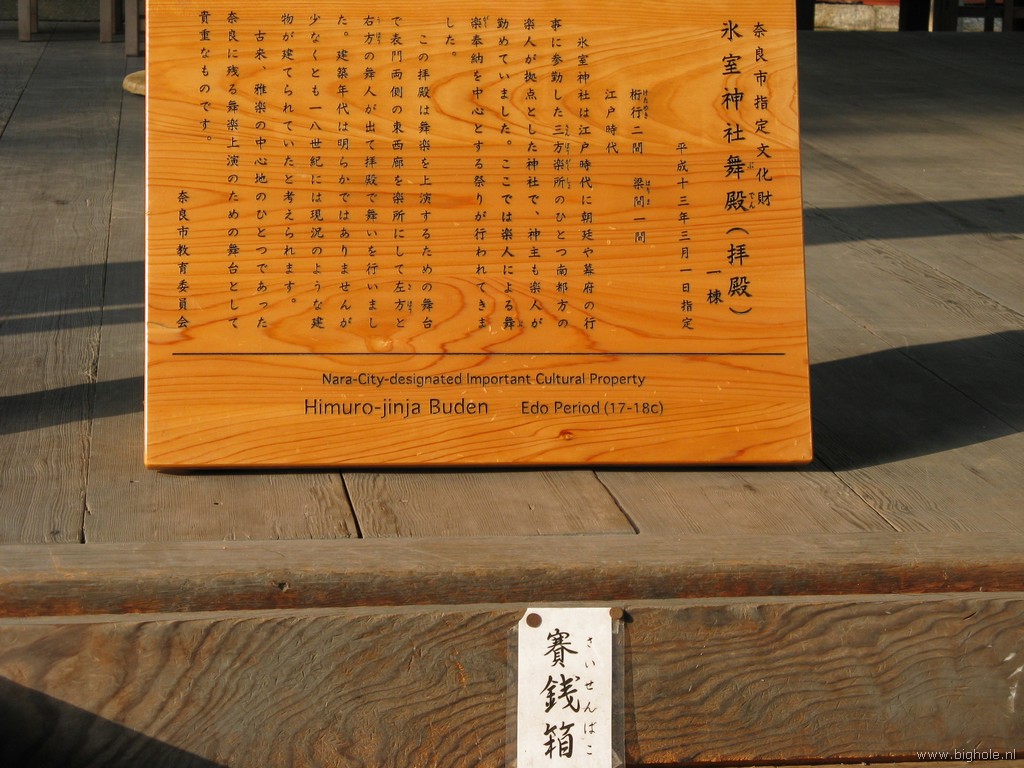 奈良市指定文化財
氷室神社舞殿（拝殿）
ぶ でん
一棟
平成十三年三月一日指定
桁行二間 梁間一間
けたゆき はりま
江戸時代
氷室神社は江戸時代に朝廷や幕府の行
事に参勤した三方楽所のひとつ南都方の
さんぽうがくしょ
楽人が拠点とした神社で、神主も楽人が
勤めていました。ここでは楽人による舞
楽奉納を中心とする祭りが行われてきま
した。
この拝殿は舞楽を上演するための舞台
で表門両側の東西廊を楽所にして左方と
さほう
右方の舞人が出て拝殿で舞いを行いまし
た。建築年代は明らかではありませんが
少なくとも一八世紀には現況のような建
物が建てられていたと考えられます。
古来、雅楽の中心地のひとつであった
奈良に残る舞楽上演のための舞台として
貴重なものです。
奈良市教育委員会
Nara-City-designated Important Cultural Property
Himuro-jinja Buden Edo Period (17-18c)
賽銭箱
さいせんばこ
www.bighole.nl